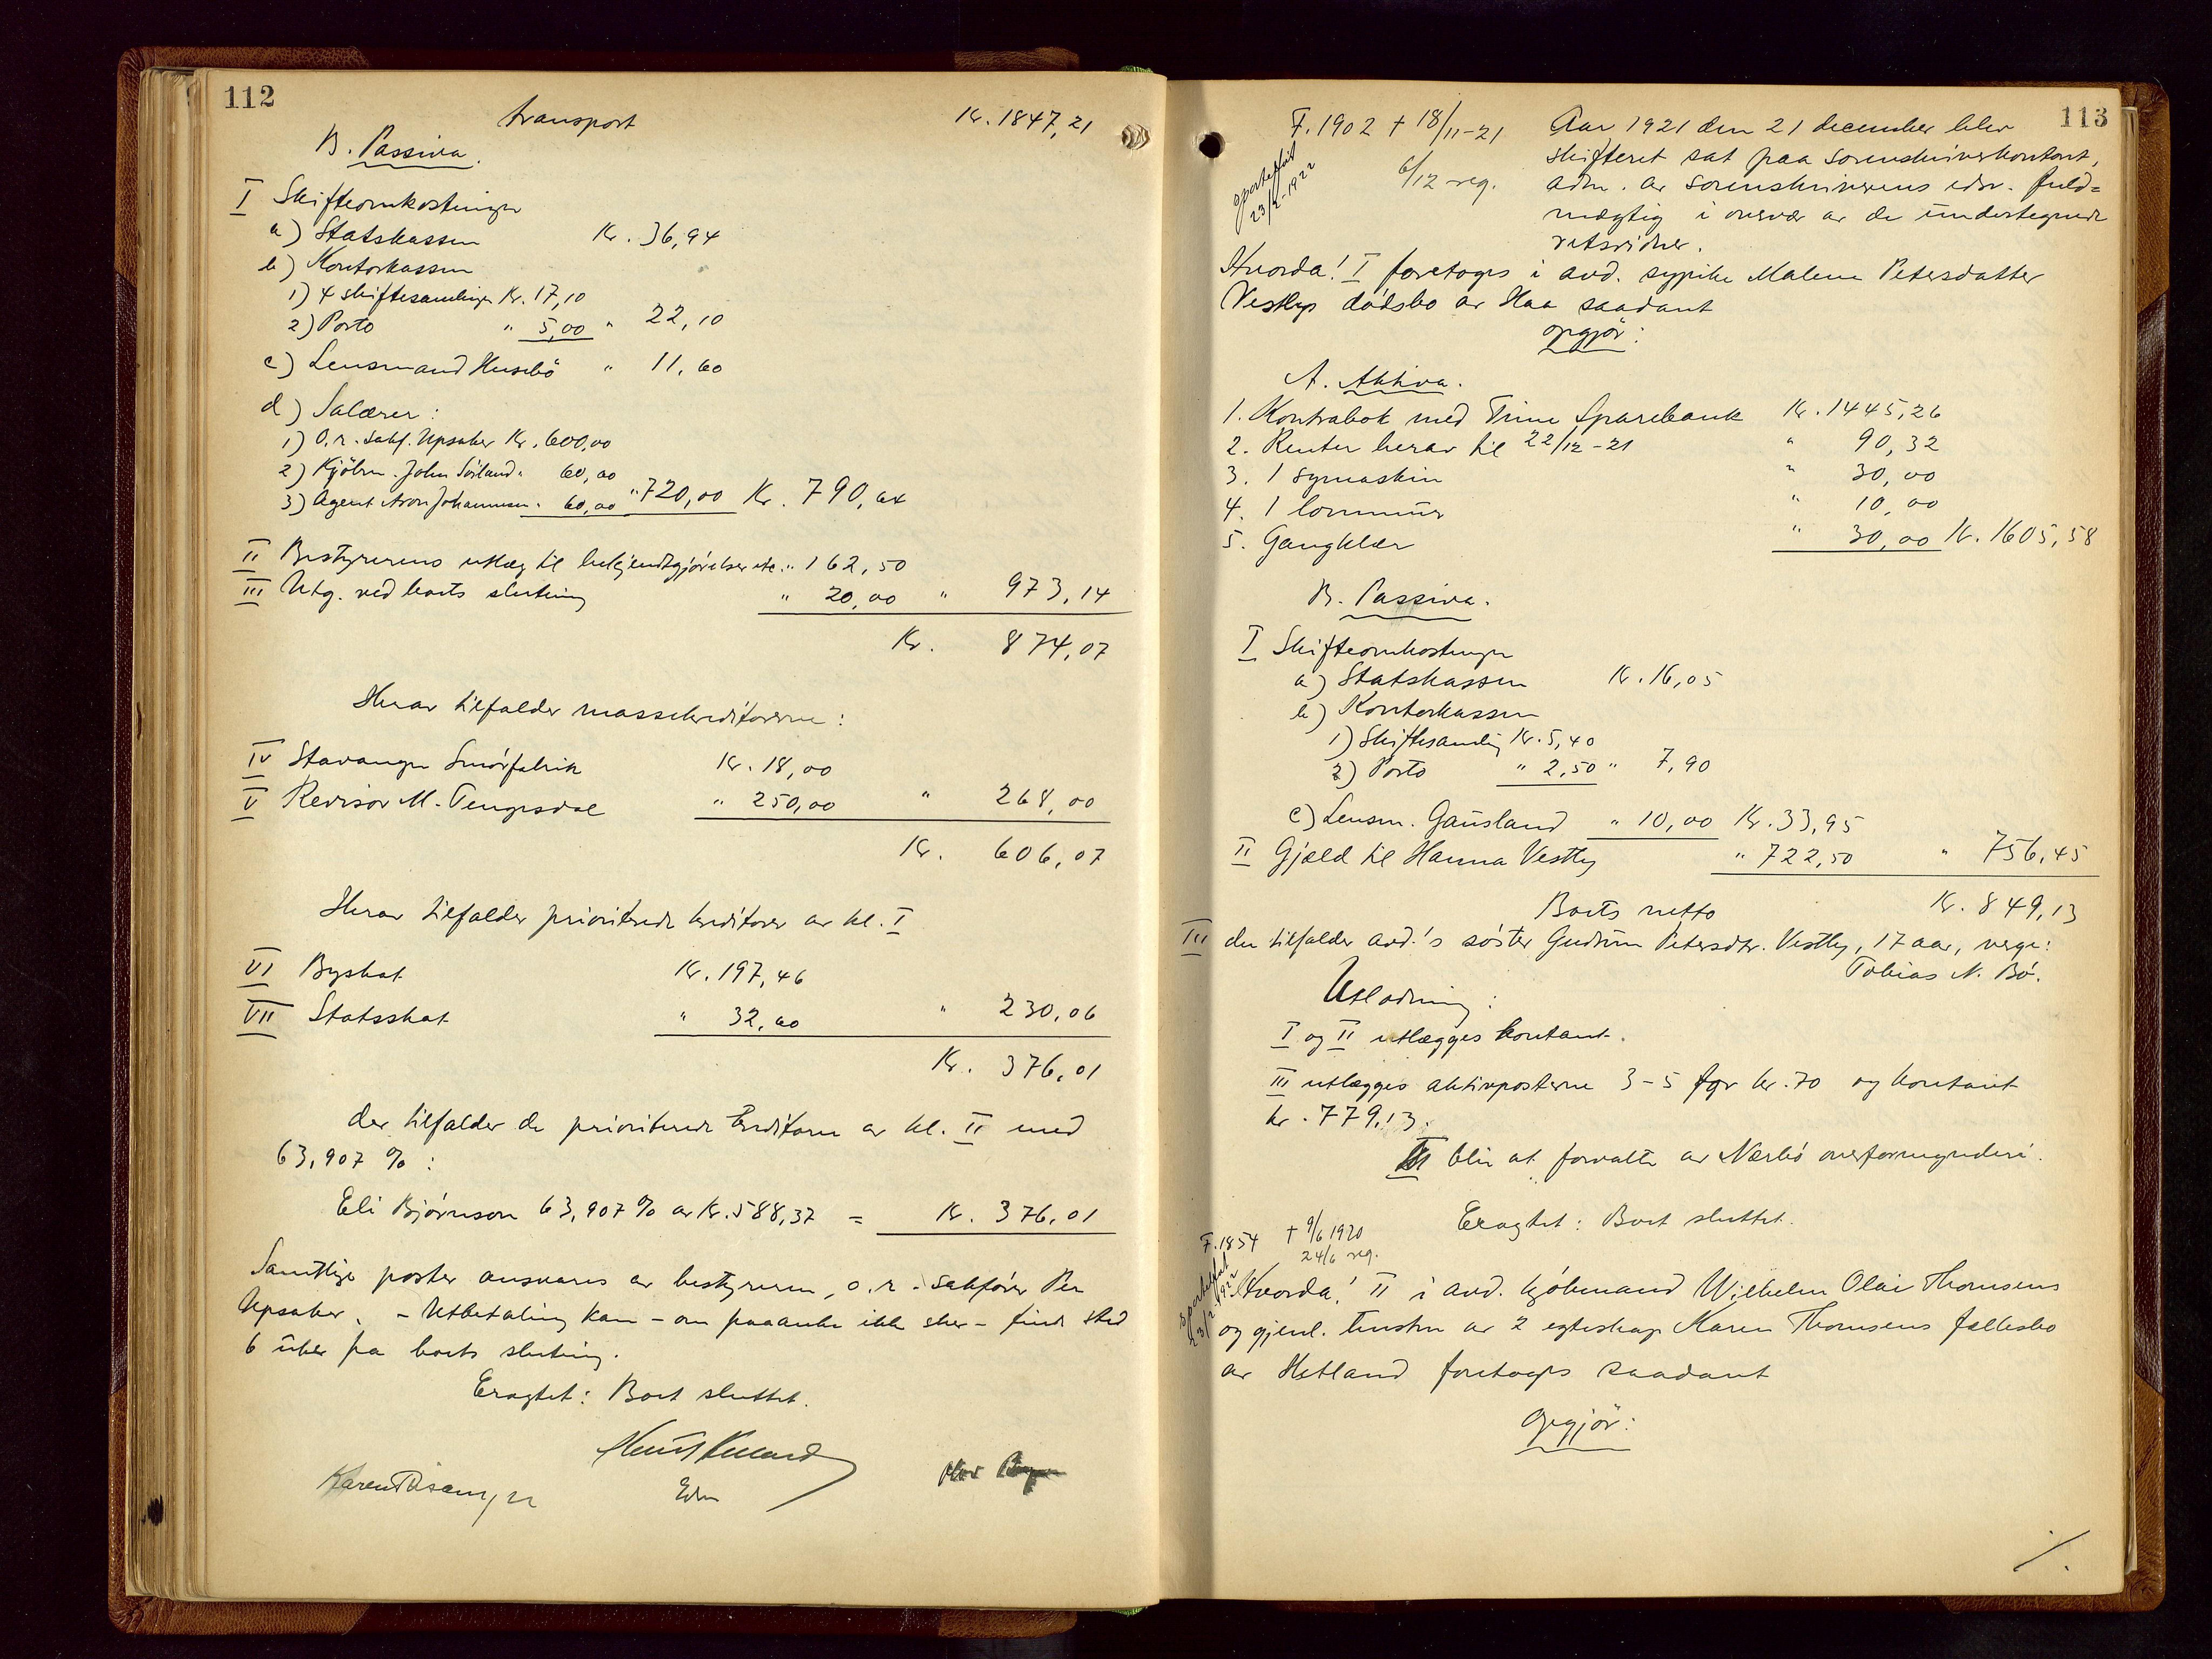 112
transport Kr. 1847,21
B. Passiva.
I Skifteomkostninger
a) Statskassen Kr. 36,94
b) Kontorkassen
1) 4 skiftesamlinger Kr. 17,10
2) Porto " 5,00 " 22,10
c) Lensmand Husebö " 11,60
d) Salærer:
1) O.r.sakf. Upsaker Kr. 600,00
2) Kjöbm. John Sörland " 60,00
3) Agent Aron Johannesen " 60,00 " 720,00 Kr. 790,64
II Bestyrerens utlæg til bekjendtgjörelser etc. " 162,50
III Utg. ved boets slutning " 20,00 " 973,14
Kr. 874,07
Herav tilfalder massekreditorerne:
IV Stavanger Smörfabrik Kr. 18,00
V Revisor M. Tengesdal " 250,00 " 268,00
Kr. 606,07
Herav tilfalder prioriterede kreditorer av kl. I
VI Byskat Kr. 197,46
VII Statsskat " 32,60 " 230,06
Kr. 376,01
der tilfalder de prioriterede kreditorer av kl. II med
63,907 % :
Eli Bjørnson 63,907 % av Kr. 588,37 = Kr. 376,01
Samtlige poster ansvares av bestyreren, o.r.sakförer Per
Upsaker. - Utbetaling kan - om paaanke ikke sker - finde sted
6 uker fra boets slutning.
Eragtet: Boet sluttet.
Edm
113
F. 1902 † 18/11-21
6/12 reg.
sportelfrit
23/2-1922
Aar 1921 den 21 december blev
skifteret sat paa sorenskriverkontoret,
adm. av sorenskriverens edsv. fuld=
mægtig i overvær av de undertegnede
retsvidner.
Hvorda! I foretoges i avd. sypike Malene Petersdatter
Vestlys dödsbo av Haa saadant
opgjör:
A. Aktiva.
1. Kontrabok med Time Sparebank Kr. 1445,26
2. Renter herav til 22/12-21 " 90,32
3. 1 symaskin " 30,00
4. 1 lommeur " 10,00
5. Gangklær " 30,00 Kr. 1605,58
B. Passiva.
I Skifteomkostninger
a) Statskassen Kr. 16,05
b) Kontorkassen
1) Skiftesamling Kr. 5,40
2) Porto " 2,50 " 7,90
c) Lensm. Gausland " 10,00 Kr. 33,95
II Gjæld til Hanna Vestly " 722,50 " 756,45
Boets netto Kr. 849,13
III der tilfalder avd.'s söster Gudrun Petersdtr. Vestly, 17 aar, verge:
Tobias N. Bö.
Utlodning:
I og II utlægges kontant.
III utlægges aktivposterne 3-5 for kr. 70 og kontant
kr. 779,13.
III blir at forvalte av Nærbö overformynderi.
Eragtet: Boet sluttet.
F. 1854 † 9/6 1920
24/6 reg.
sportelfrit
23/2-1922
Hvorda! II i avd. kjöbmand Wilhelm Olai Thomsens
og gjenl. hustru av 2 egteskap Karen Thomsens fællesbo
av Hetland foretoges saadant
opgjör:
/.